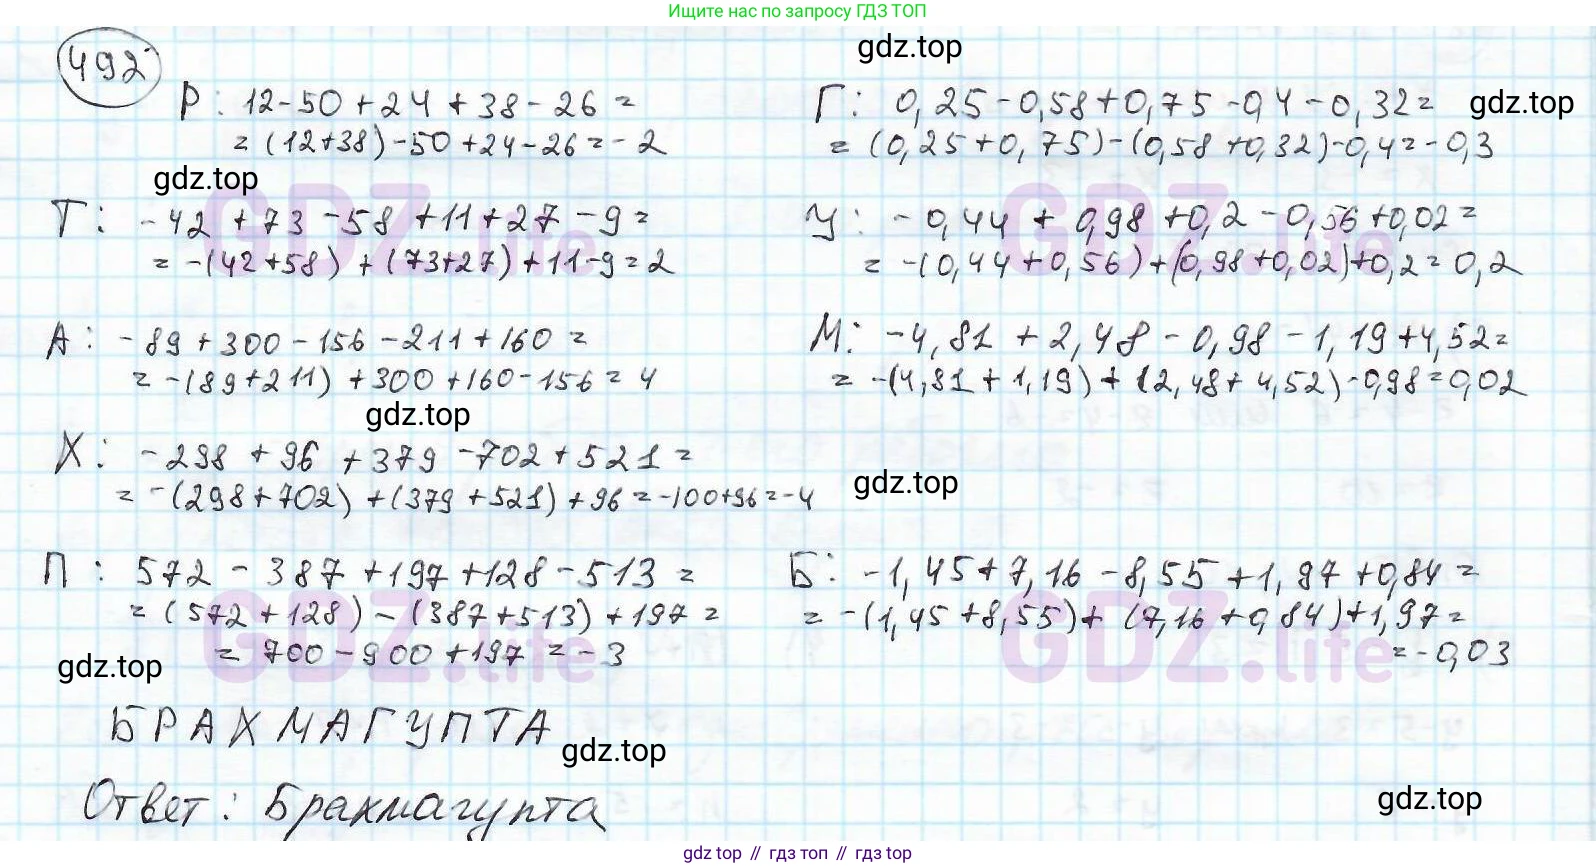 Ищите нас по запросу ГДЗ ТОП
492
gdz.top
Р: 12-50+24+38-26=
=(12+38)-50+24-26=-2
Г: 0,25-0,58+0,75-0,4-0,32=
=(0,25+0,75)-(0,58+0,32)-0,4=-0,3
gdz.top
gdz.top
GDZ.life
GDZ.life
Т: -42+73-58+11+27-9=
=-(42+58)+(73+27)+11-9=2
У: -0,44+0,98+0,2-0,56+0,02=
=-(0,44+0,56)+(0,98+0,02)+0,2=0,2
А: -89+300-156-211+160=
=-(89+211)+300+160-156=4
М: -4,81+2,48-0,98-1,19+4,52=
=-(4,81+1,19)+(2,48+4,52)-0,98=0,02
gdz.top
Х: -298+96+379-702+521=
=-(298+702)+(379+521)+96=-100+96=-4
gdz.top
П: 572-387+197+128-513=
=(572+128)-(387+513)+197=
=700-900+197=-3
Б: -1,45+7,16-8,55+1,97+0,84=
=-(1,45+8,55)+(7,16+0,84)+1,97=
=-0,03
GDZ.life
GDZ.life
gdz.top
БРАХМАГУПТА
gdz.top
Ответ: Брахмагупта
gdz.top
gdz top // гдз топ // gdz top